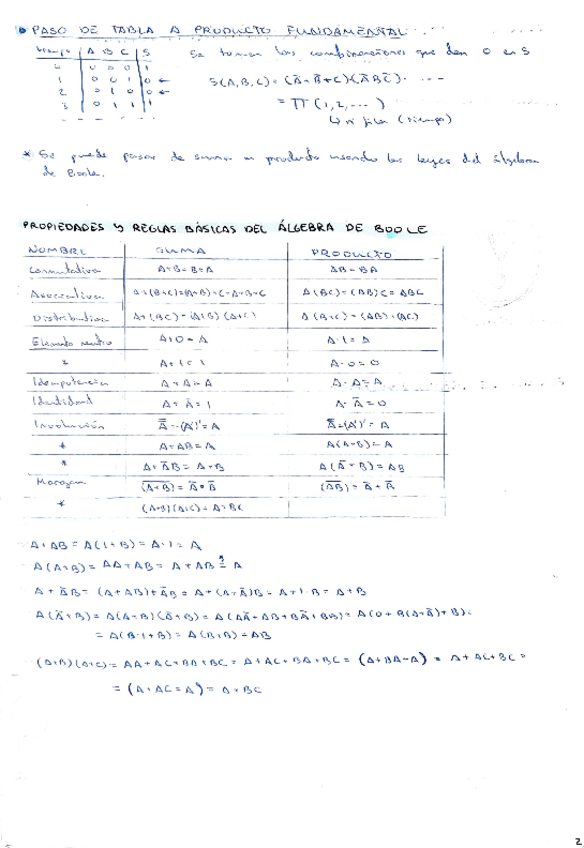 PASO DE TABLA A PRODUCTO FUNDAMENTAL
tiempo A B C S
0 0 0 1
1 0 0 1 0 ←
2 0 1 0 0 ←
3 0 1 1 1
Se toman las combinaciones que dan 0 en S
S(A,B,C) = (A+B+C̄)·(A+B̄+C)· ...
= Π(1,2,...)
↳ nº fila (tiempo)
* Se puede pasar de suma a producto usando las leyes del álgebra
de Boole.
PROPIEDADES Y REGLAS BÁSICAS DEL ÁLGEBRA DE BOOLE
NOMBRE SUMA PRODUCTO
Conmutativa A+B = B+A AB = BA
Asociativa A+(B+C)=(A+B)+C=A+B+C A(BC)=(AB)C=ABC
Distributiva A+(BC)=(A+B)(A+C) A(B+C)=(AB)+(AC)
Elemento neutro A+0=A A·1=A
A+1=1 A·0=0
Idempotencia A+A=A A·A=A
Identidad A+Ā=1 A·Ā=0
Involución =(A')'=A =(A')'=A
* A+AB=A A(A+B)=A
* A+ĀB=A+B A(Ā+B)=AB
Morgan (A+B)‾=Ā·B̄ (AB)‾=Ā+B̄
* (A+B)(A+C)=A+BC
A+AB = A(1+B) = A·1 = A
A(A+B) = AA+AB = A+AB = A
A+ĀB = (A+AB)+ĀB = A+(A+Ā)B = A+1·B = A+B
A(Ā+B) = A(A+B)(Ā+B) = A(AĀ+AB+BĀ+BB) = A(0+B(A+Ā)+B) =
= A(B·1+B) = A(B+B) = AB
(A+B)(A+C) = AA+AC+BA+BC = A+AC+BA+BC = (A+BA=A) = A+AC+BC =
= (A+AC=A) = A+BC
2